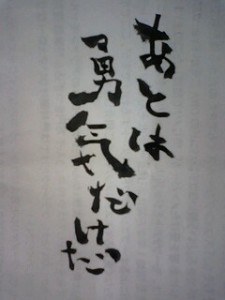 あとは
勇気だけだ